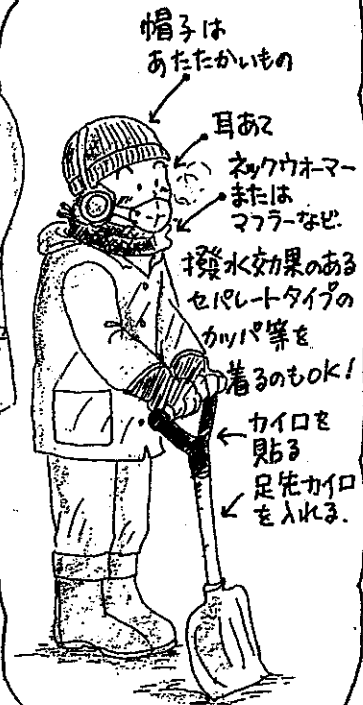 帽子は
あたたかいもの
耳あて
ネックウォーマー
または
マフラーなど.
撥水効果のある
セパレートタイプの
カッパ等を
着るのもOK!
カイロを
貼る
足先カイロ
を入れる.